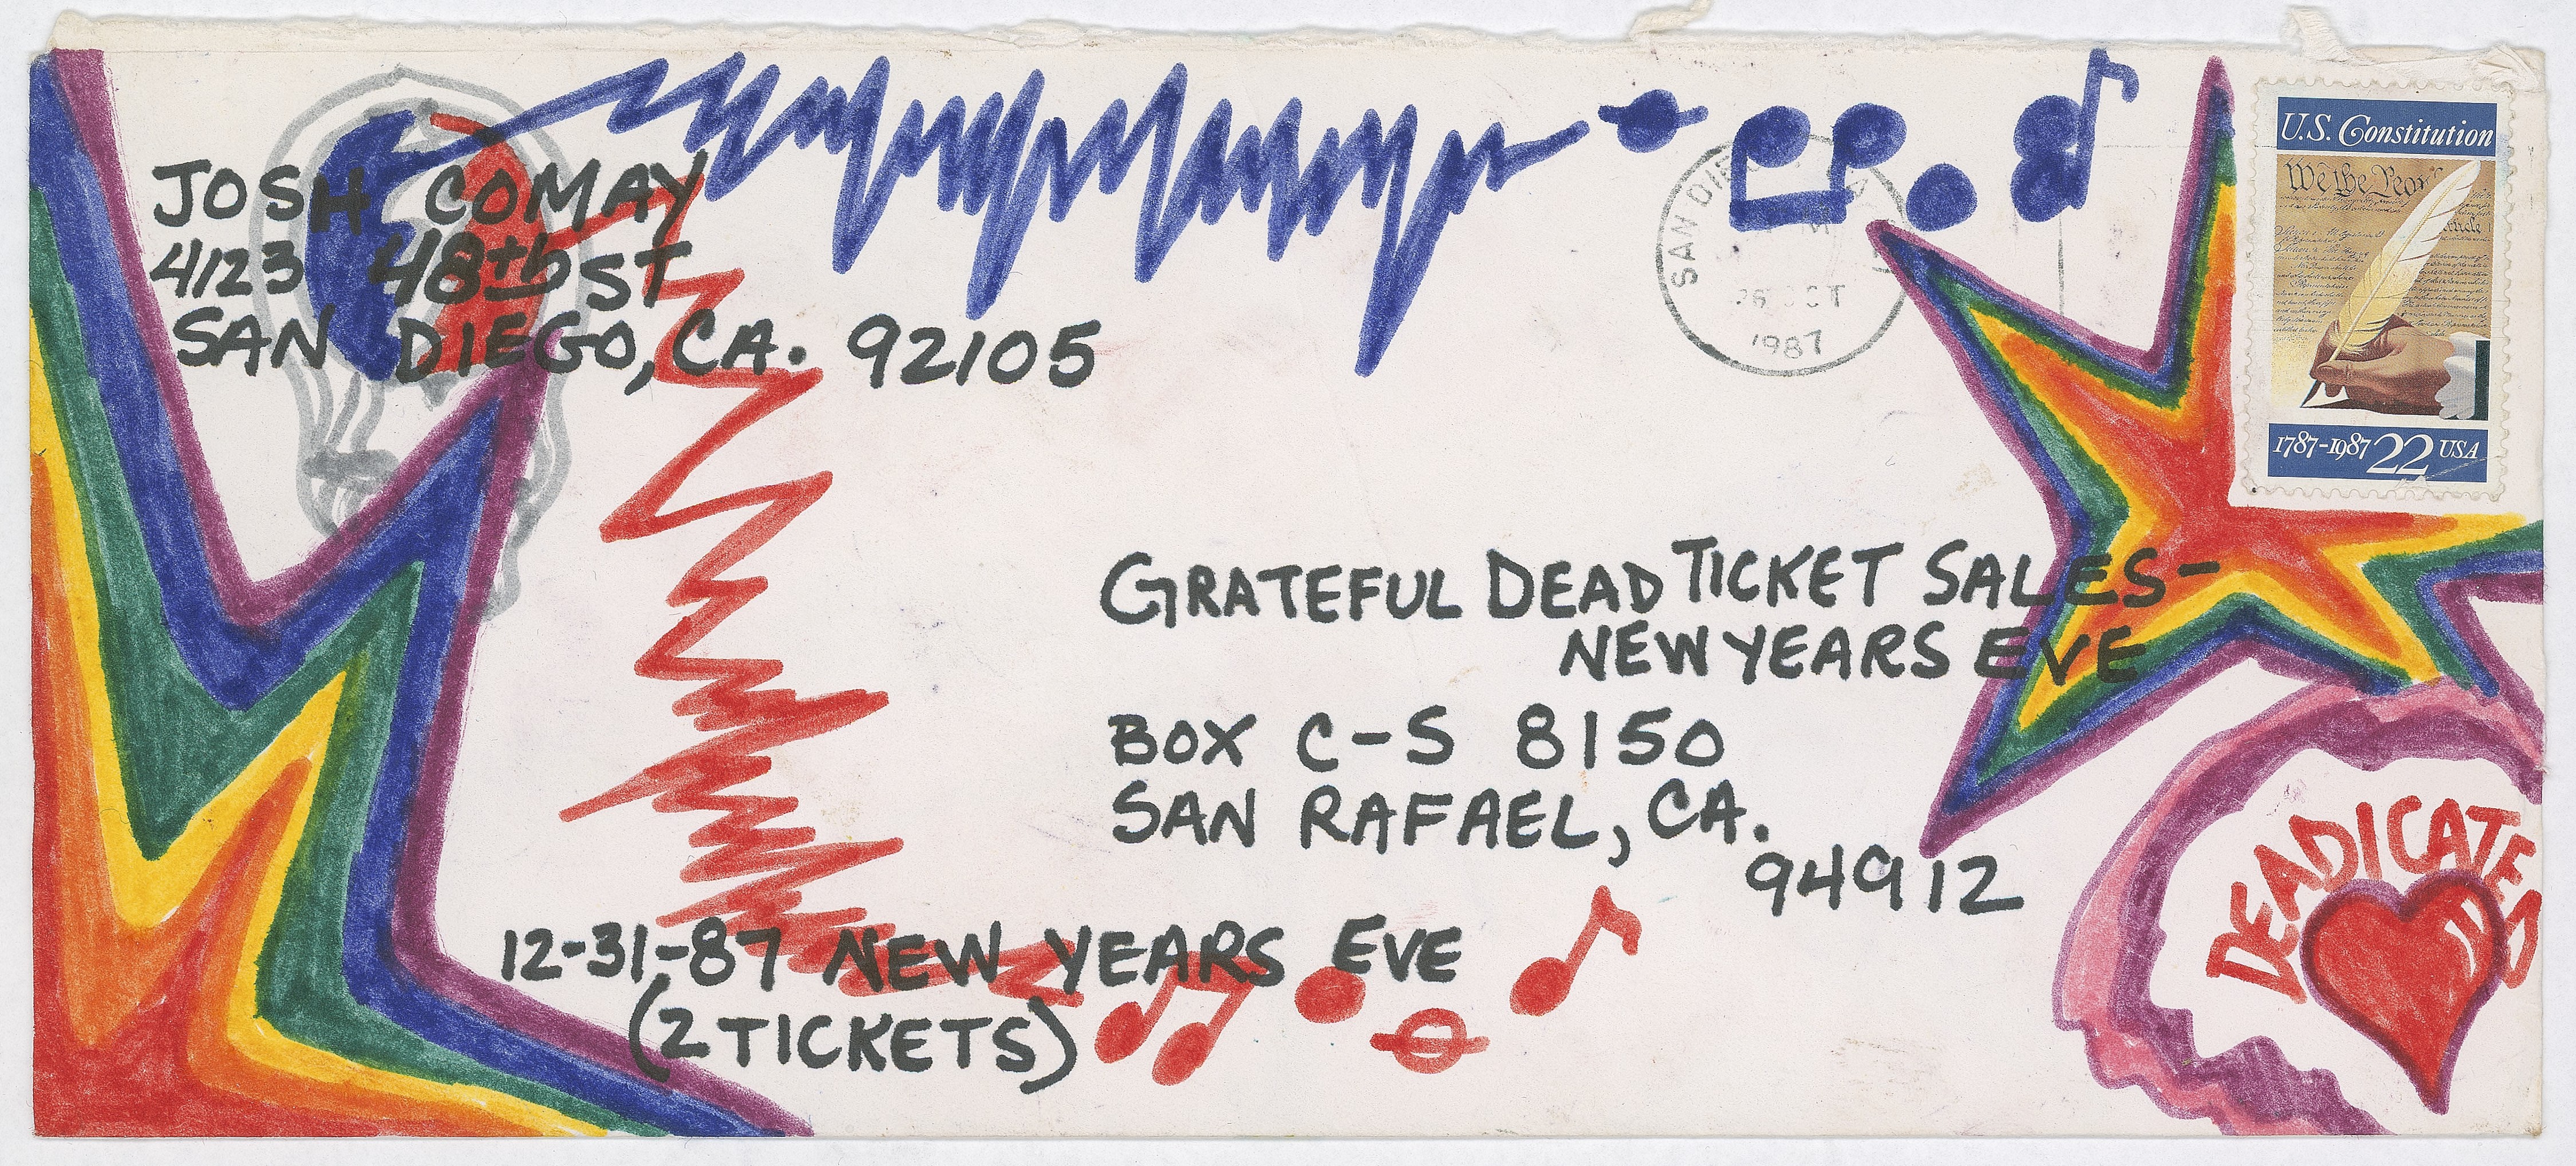 JOSH COMAY
4123 48th ST
SAN DIEGO, CA. 92105
SAN DIEGO
26 OCT
1987
U.S. Constitution
We the Peo
1787-1987 22 USA
GRATEFUL DEAD TICKET SALES-
NEW YEARS EVE
BOX C-S 8150
SAN RAFAEL, CA.
94912
12-31-87 NEW YEARS EVE
(2 TICKETS)
DEADICATED